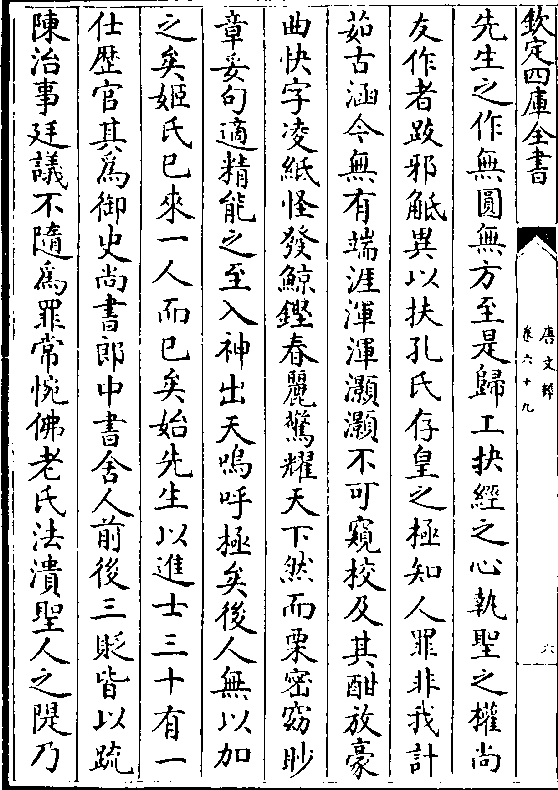 欽定四庫全書
唐文粹
卷六十九
六
先生之作無圓無方至是歸工抉經之心執聖之權尚
友作者跂邪觝異以扶孔氏存皇之極知人罪非我計
茹古涵今無有端涯渾渾灝灝不可窺校及其酣放豪
曲快字凌紙怪發鯨鏗春麗驚耀天下然而栗密窈眇
章妥句適精能之至入神出天嗚呼極矣後人無以加
之矣姬氏已來一人而已矣始先生以進士三十有一
仕歴官其為御史尚書郎中書舍人前後三貶皆以疏
陳治事廷議不隨為罪常惋佛老氏法潰聖人之隄乃